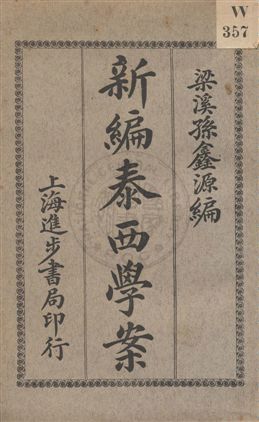 W
357
梁溪孫鑫源編
新編泰西學案
上海進步書局印行